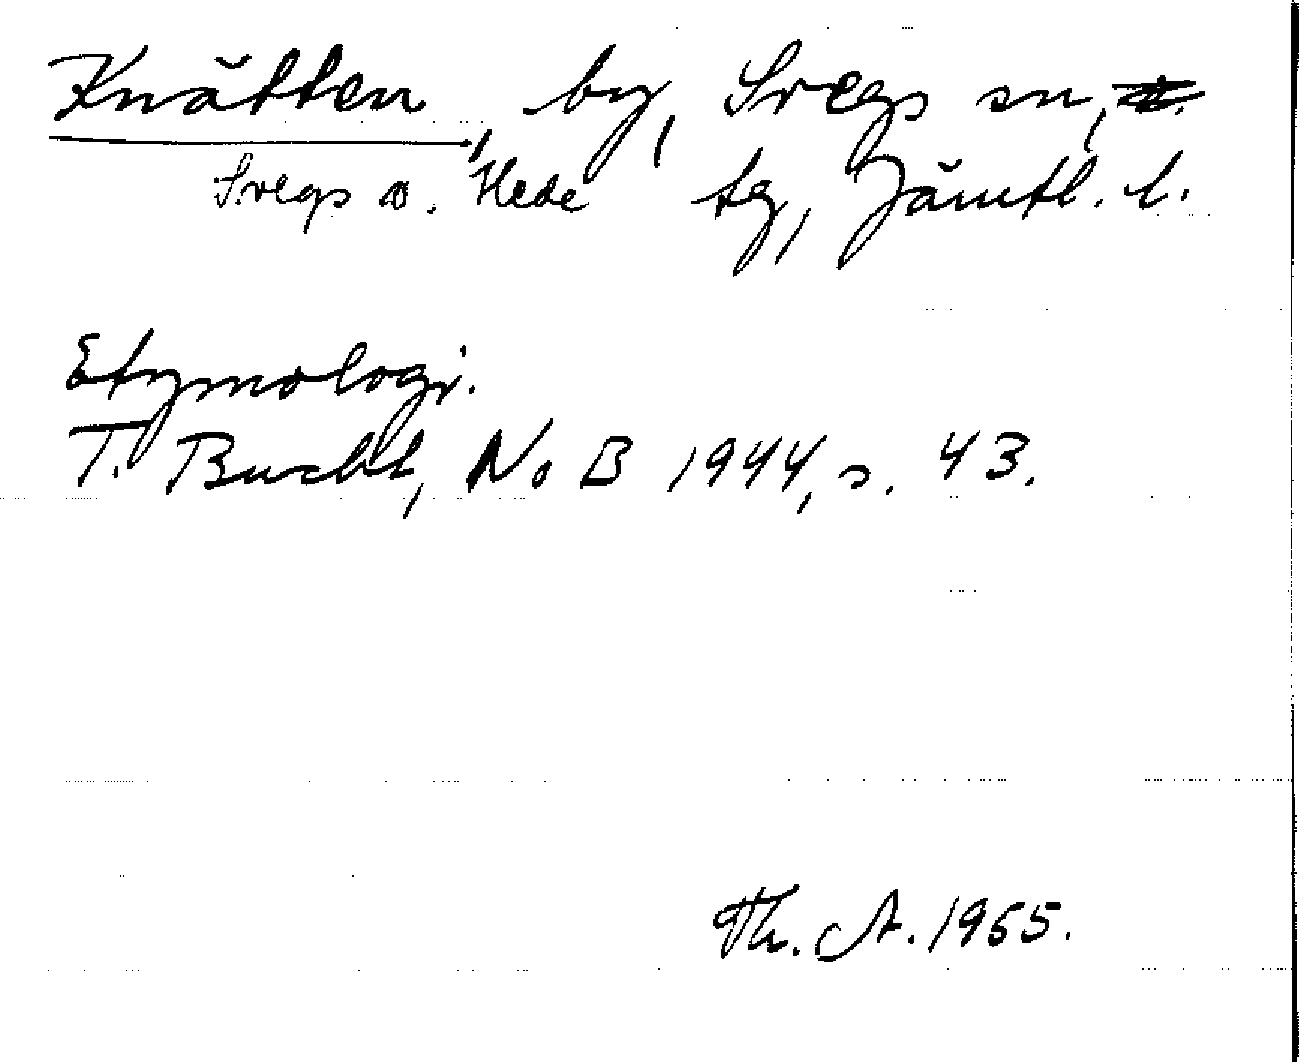 Knätten, by, Svegs sn,
Svegs o. Hede tg, Jämtl. l.
Etymologi.
T. Bucht, NoB 1944, s. 43.
Th. A. 1955.